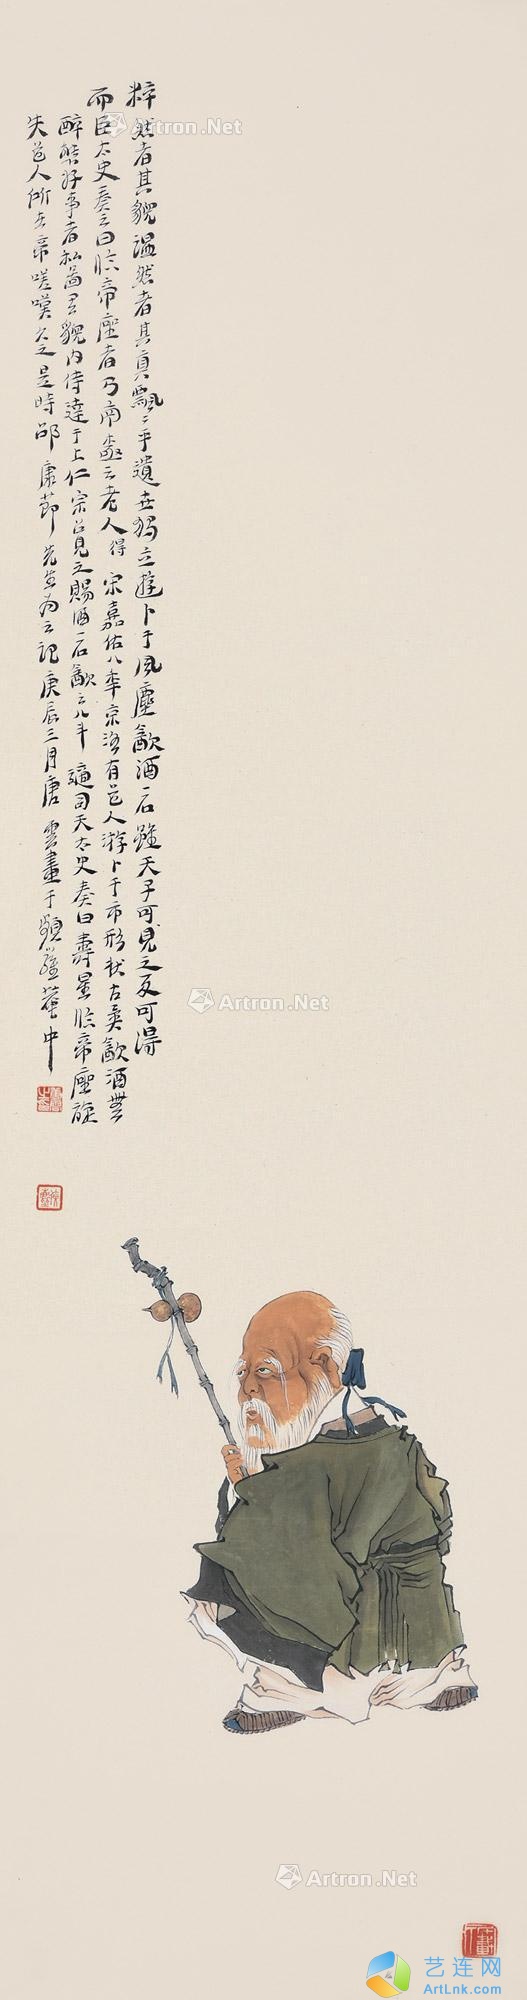 粹然者其貌温然者其真飘〻乎遗世独立游卜于风尘歠酒一石虽天子可见之反可得
而臣太史奏之曰临帝座者乃南极之老人 得 宋嘉佑八年京洛有道人游卜于市形状古异歠酒无
醉态好事者私图其貌内侍达于上仁宗召见之赐酒一石歠之八斗 适司天太史奏曰寿星临帝座旋
失道人所在帝嗟叹久之是时邵康节先生为之记庚辰三月唐云画于 中
Artron.Net
Artron.Net
Artron.Net
Artron.Net
Artron.Net
艺连网
ArtLnk.com